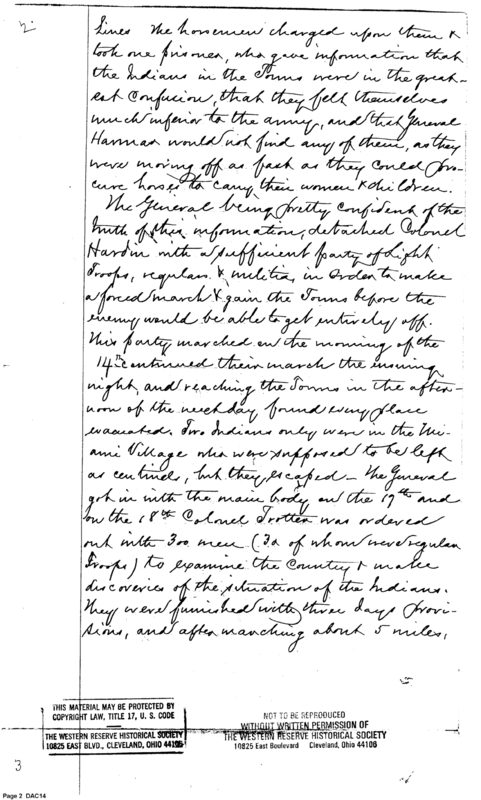 2
lines the horsemen charged upon them &
took one prisoner, who gave information that
the Indians in the Towns were in the great-
est confusion, that they felt themselves
much inferior to the army, and that General
Harmar would not find any of them, as they
were moving off as fast as they could pro-
cure horses to carry their women & children.
The General being pretty confident of the
truth of this information, detached Colonel
Hardin with a sufficient party of Light
Troops, regulars & militia, in order to make
a forced march & gain the Towns before the
enemy would be able to get entirely off.
This party marched on the morning of the
14th continued their march the ensuing
night, and reaching the Towns in the after-
noon of the next day found every place
evacuated. Two Indians only were in the Mi-
ami Village who were supposed to be left
as centinels, but they escaped — The General
got in with the main body on the 17th and
on the 18th Colonel Trotter was ordered
out with 300 men (30 of whom were regular
Troops) to examine the Country & make
discoveries of the situation of the Indians.
They were furnished with three days provi-
sions, and after marching about 5 miles,
THIS MATERIAL MAY BE PROTECTED BY
COPYRIGHT LAW, TITLE 17, U. S. CODE
THE WESTERN RESERVE HISTORICAL SOCIETY
10825 EAST BLVD., CLEVELAND, OHIO 44106
NOT TO BE REPRODUCED
WITHOUT WRITTEN PERMISSION OF
THE WESTERN RESERVE HISTORICAL SOCIETY
10825 East Boulevard Cleveland, Ohio 44106
3
Page 2 DAC14